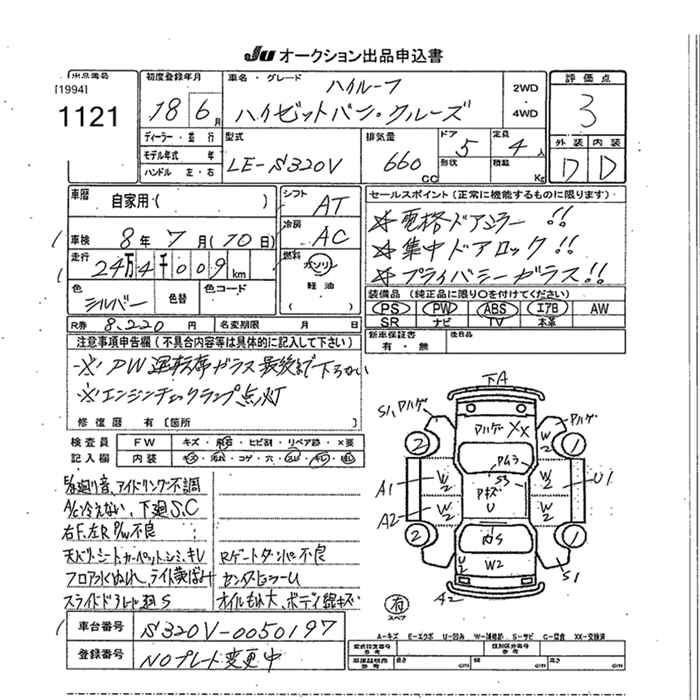 JU オークション出品申込書
出品番号
[1994]
1121
初度登録年月
18 6 月
車名・グレード
ハイルーフ
ハイゼットバン・クルーズ
2WD
・
4WD
評価点
3
外装 内装
D D
ディーラー・並行
モデル年式 年
ハンドル 左・右
型式
LE-S320V
排気量
660 CC
ドア 5
形状
定員 4 人
積載 Kg
車歴
自家用・( )
車検 8年 7月(10日)
走行
24万4千009 km
色
シルバー
色替
色コード
シフト AT
冷房 AC
燃料 ガソリン
・
軽油
セールスポイント(正常に機能するものに限ります)
☆電格ドアミラー!!
☆集中ドアロック!!
☆プライバシーガラス!!
装備品(純正品に限り○を付けてください)
PS PW ABS エアB AW
SR ナビ TV 本革
R券 8,220 円 名変期限 月 日
新車保証書
有・無
後日品
注意事項申告欄(不具合内容等は具体的に記入して下さい)
※PW運転席ガラス最後まで下らない
※エンジンチェックランプ点灯
修復歴 有〔箇所 〕
検査員 FW キズ・飛石・ヒビ割・リペア跡・×要
記入欄 内装 キズ・汚れ・コゲ・穴・スレ・
廻り音、アイドリング不調
A/C冷えない、下廻S,C
右F、左R P/W不良
天バリ、シート、カーペット、シミ、キレ
Rゲートダンパー不良
フロア
ライト黄ばみ
センターピラーU
スライドドアレール廻S
オイルもれ大、ボディ線キズ
車台番号 S320V-0050197
登録番号 NOプレート変更中
フA
S1 ハゲ
ハゲ XX
ハゲ
2 1
W2
S3
A1 W2 W2 U1
キズ
U
A2 W2 W2
2 1
内S
U2 W2
A2 S1
有
スペア
A-キズ E-エクボ U-凹み W-補修跡 S-サビ C-腐食 XX-交換済
型式指定番号
参考
類別区分番号
参考
車庫証明用
参考
長さ cm 幅 cm 高さ cm